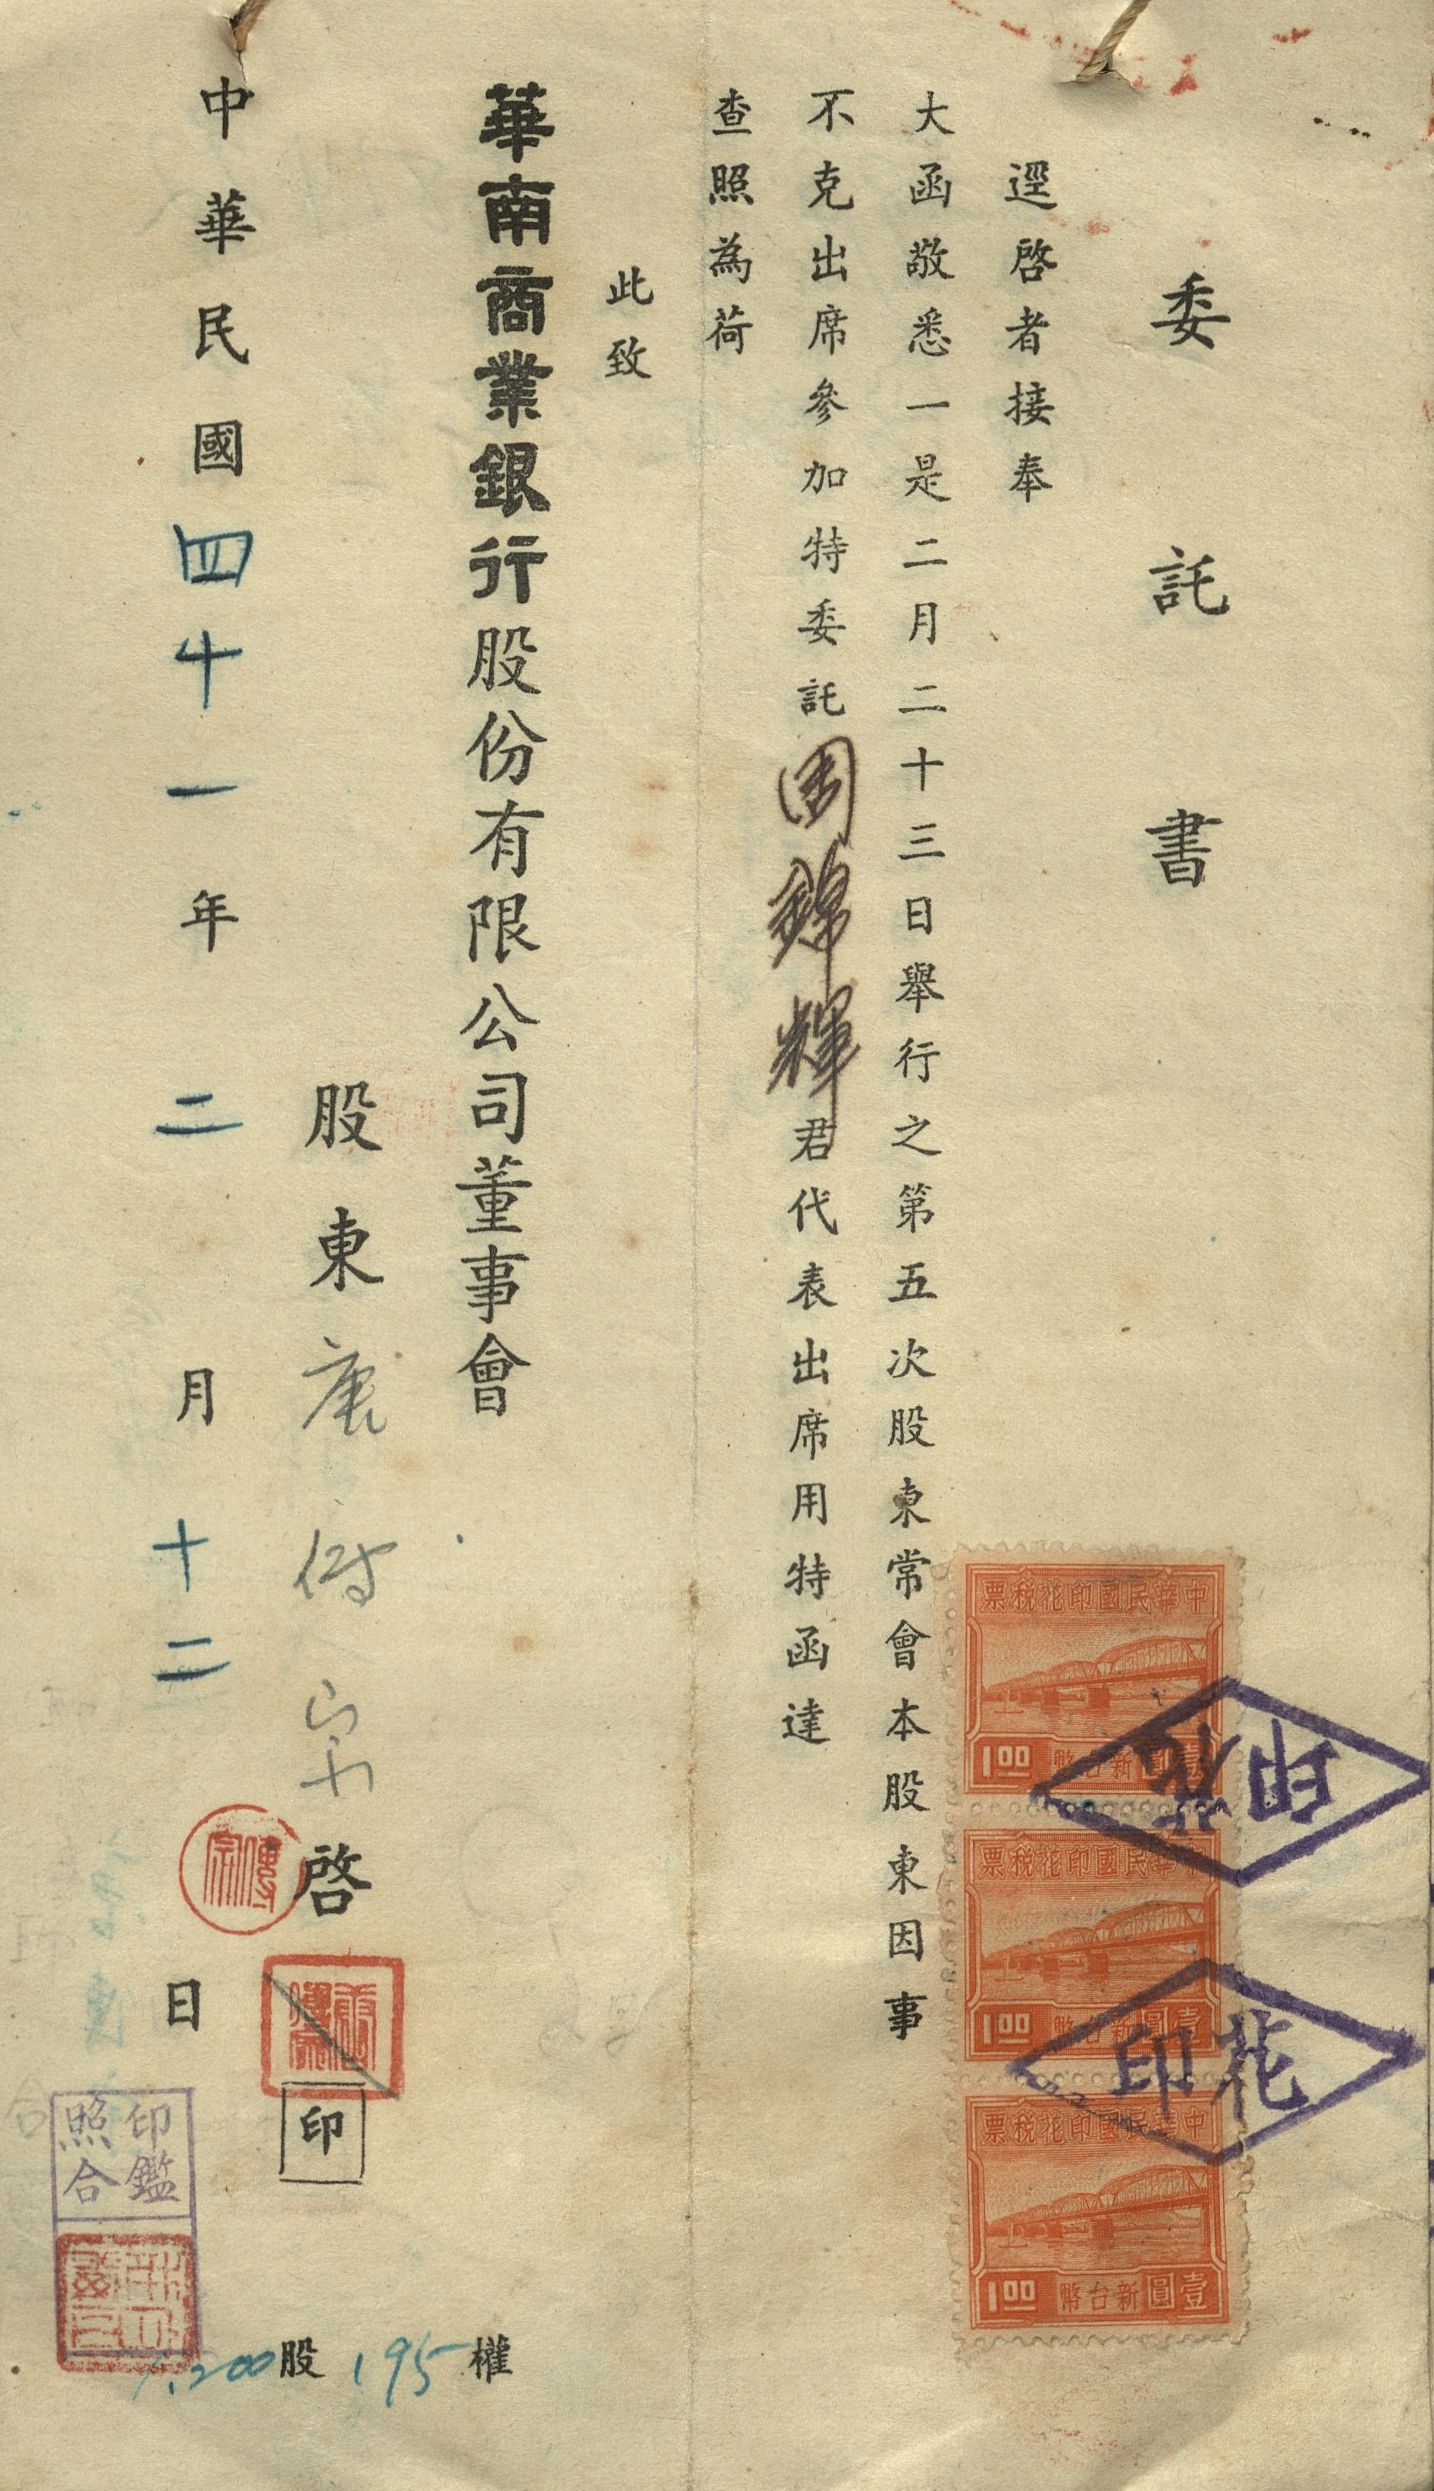 委託書
逕啓者接奉
大函敬悉一是二月二十三日舉行之第五次股東常會本股東因事
不克出席參加特委託周錦輝君代表出席用特函達
查照為荷
此致
華南商業銀行股份有限公司董事會
股東唐傳宗啓
印
中華民國四十一年二月十二日
傳宗
印鑑
照合
200股195權
中華民國印花稅票
1.00
壹圓新台幣
中華民國印花稅票
1.00
壹圓新台幣
中華民國印花稅票
1.00
壹圓新台幣
印花
印花